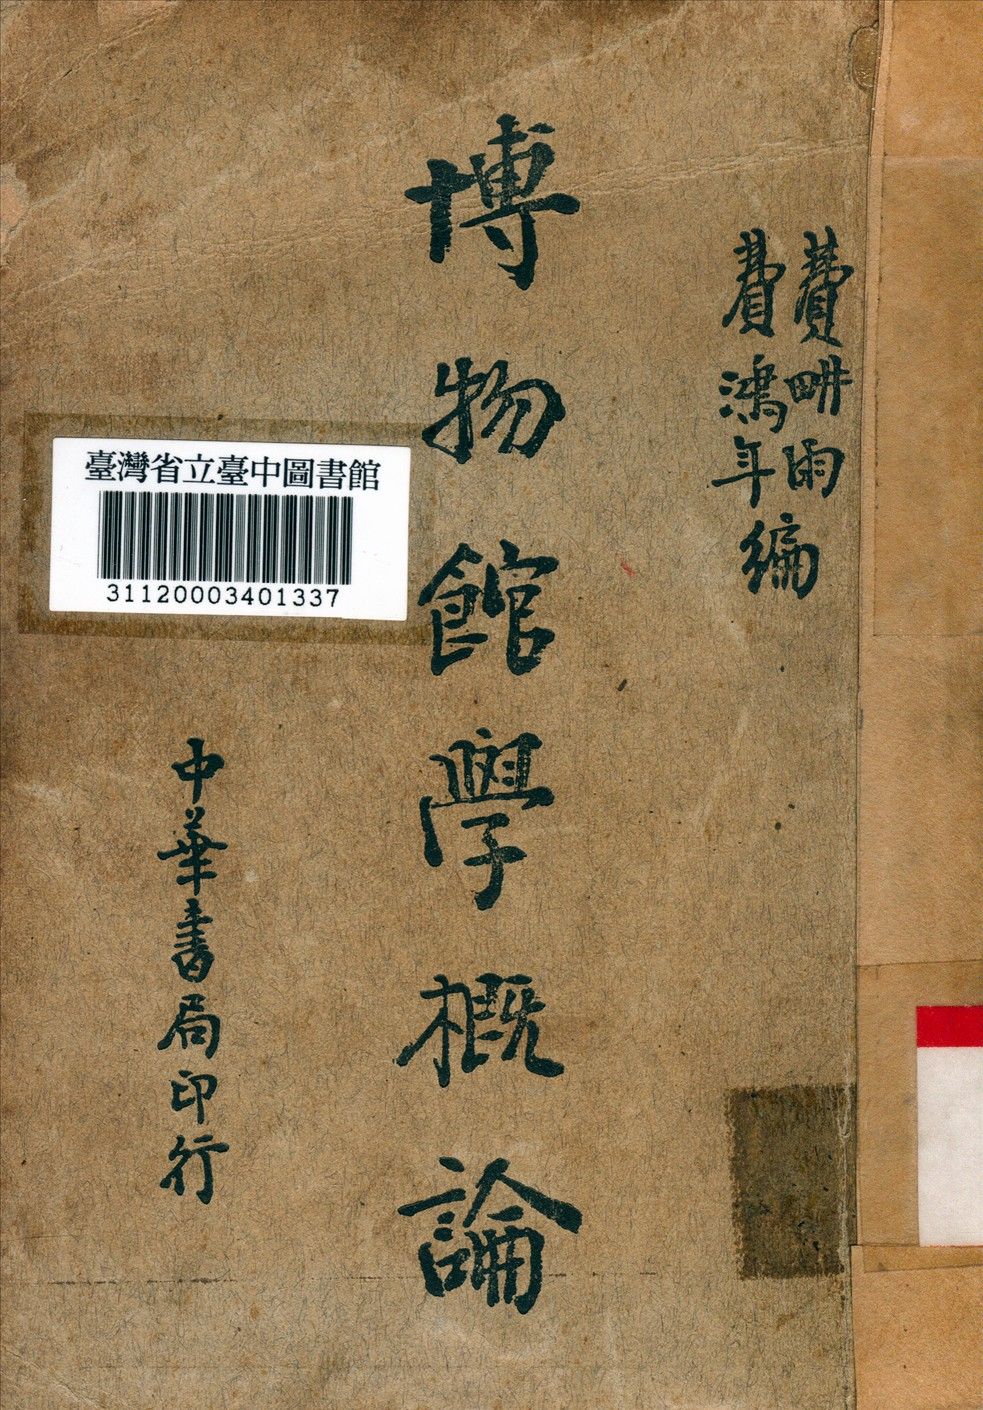 費畊雨
費鴻年編
博物館學概論
臺灣省立臺中圖書館
31120003401337
中華書局印行